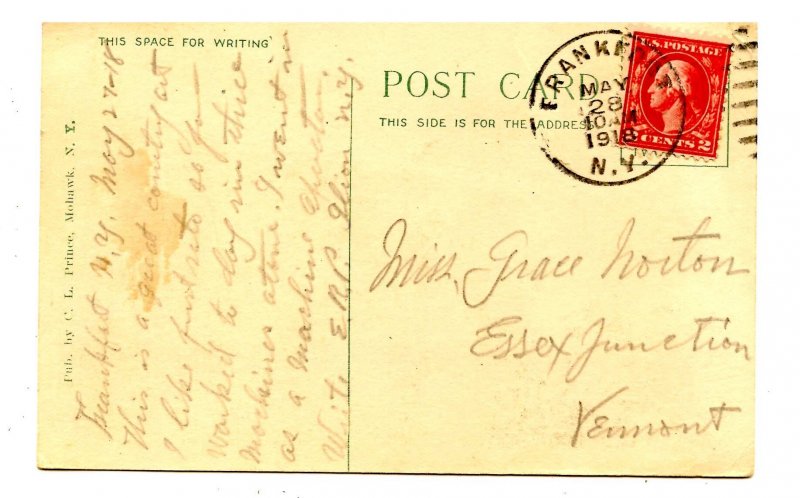 THIS SPACE FOR WRITING
POST CARD
THIS SIDE IS FOR THE ADDRESS
FRANKFORT
MAY
28
10 AM
1918
N.Y.
U.S. POSTAGE
2 CENTS 2
Pub. by C. L. Prince, Mohawk, N. Y.
Frankfort N.Y. May 27-18
This is a great country all
I like first rate so far
Worked to day run three
Machines alone. I went in
as a Machine
Write E.R.P. Ilion N.Y.
Miss. Grace Norton
Essex Junction
Vermont